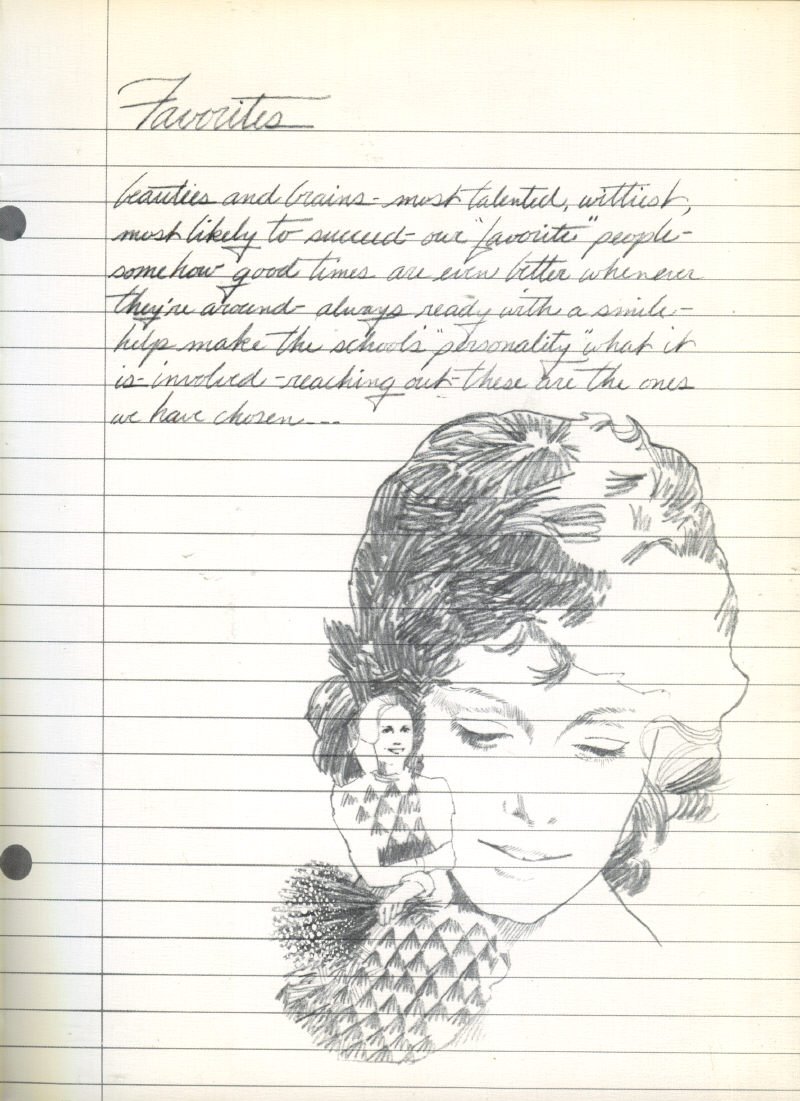 Favorites
beauties and brains - most talented, wittiest,
most likely to succeed - our "favorite" people -
somehow good times are even better whenever
they're around - always ready with a smile -
help make the school's "personality" what it
is - involved - reaching out - these are the ones
we have chosen ---